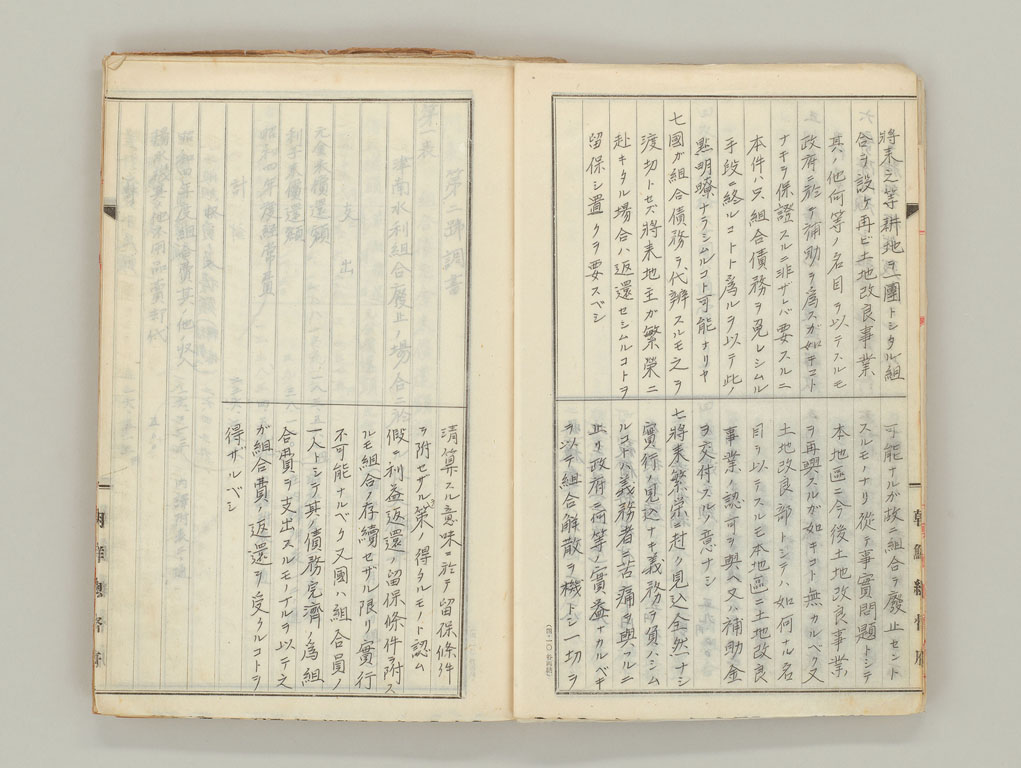 將来之等耕地ヲ一團トシタル組
合ヲ設ケ再ビ土地改良事業
其ノ他何等ノ名目ヲ以テスルモ
政府ニ於テ補助ヲ爲スガ如キコト
ナキヲ保證スルニ非ザレバ要スルニ
本件ハ只組合債務ヲ免レシムル
手段ニ終ルコトト爲ルヲ以テ此ノ
點明瞭ナラシムルコト可能ナリヤ
七國ガ組合債務ヲ代辨スルモ之ヲ
渡切トセズ將来地主ガ繁榮ニ
赴キタル場合ハ返還セシムルコトヲ
留保シ置クヲ要スベシ
可能ナルガ故ニ組合ヲ廢止セント
スルモノナリ從テ事實問題トシテ
本地區ニ今後土地改良事業
ヲ再興スルガ如キコト無カルベク又
土地改良部トシテハ如何ナル名
目ヲ以テスルモ本地區ニ土地改良
事業ノ認可ヲ與ヘ又ハ補助金
ヲ交付スルノ意ナシ
七將来繁榮ニ赴ク見込全然ナシ
實行ノ見込ナキ義務ヲ負ハシム
ルコトハ義務者ニ苦痛ヲ與フルニ
止リ政府ニ何等ノ實益ナカルベキ
ヲ以テ組合解散ヲ機トシ一切ヲ
清算スル意味ニ於テ留保條件
ヲ附セザル策ノ得タルモノト認ム
假ニ利益返還ノ留保條件ヲ附ス
ルモ組合ノ存續セザル限リ實行
不可能ナルベク又國ハ組合員ノ
一人トシテ其ノ債務完濟ノ爲組
合費ヲ支出スルモノナルヲ以テ之
ガ組合費ノ返還ヲ受クルコトヲ
得ザルベシ
朝鮮總督府
朝鮮總督府